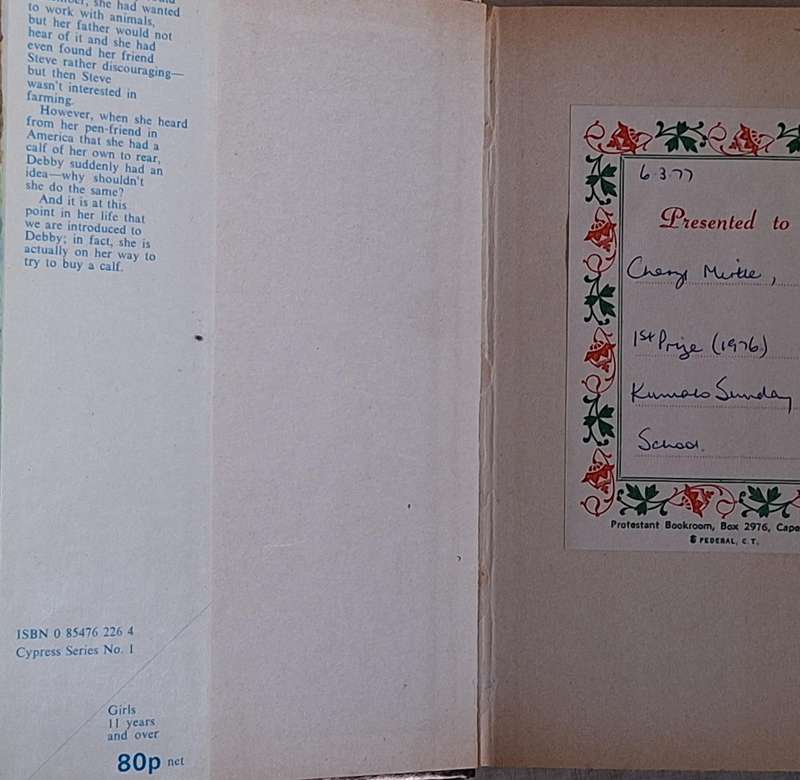 she had wanted
to work with animals,
but her father would not
hear of it and she had
even found her friend
Steve rather discouraging—
but then Steve
wasn't interested in
farming.
However, when she heard
from her pen-friend in
America that she had a
calf of her own to rear,
Debby suddenly had an
idea—why shouldn't
she do the same?
And it is at this
point in her life that
we are introduced to
Debby; in fact, she is
actually on her way to
try to buy a calf.
ISBN 0 85476 226 4
Cypress Series No. 1
Girls
11 years
and over
80p net
6·3·77
Presented to
Cheryl
1st Prize (1976)
Kumalo Sunday
School.
Protestant Bookroom, Box 2976, Cape
FEDERAL, C.T.